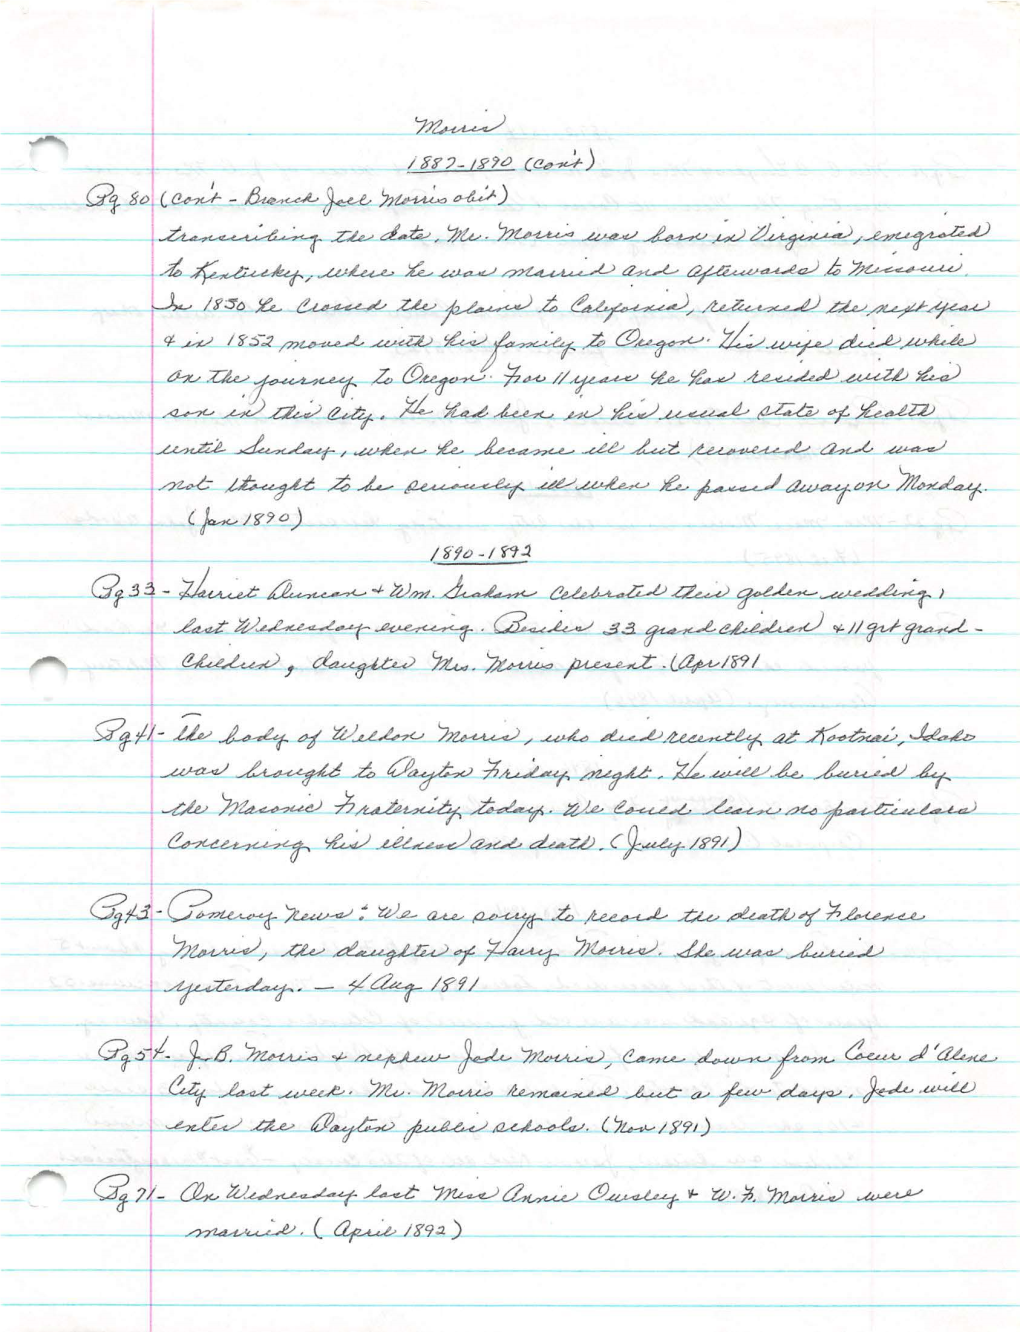 Morris
1887-1890 (con't)
Pg 80 (con't - Branch Joel Morris obit)
transcribing the date. Mr. Morris was born in Virginia, emigrated
to Kentucky, where he was married and afterwards to Missouri.
In 1850 he crossed the plains to California, returned the next year
& in 1852 moved with his family to Oregon. His wife died while
on the journey to Oregon. For 11 years he has resided with his
son in this city. He had been in his usual state of health
until Sunday, when he became ill but recovered and was
not thought to be seriously ill when he passed away on Monday.
(Jan 1890)
1890-1892
Pg 33 - Harriet Duncan & Wm. Graham celebrated their golden wedding,
last Wednesday evening. Besides 33 grandchildren & 11 grt grand-
children, daughter Mrs. Morris present. (Apr 1891
Pg 41 - The body of Weldon Morris, who died recently at Kootnai, Idaho
was brought to Dayton Friday night. He will be buried by
the Masonic Fraternity today. We could learn no particulars
concerning his illness and death. (July 1891)
Pg 43 - Pomeroy News: We are sorry to record the death of Florence
Morris, the daughter of Harry Morris. She was buried
yesterday. - 4 Aug 1891
Pg 54 - J.B. Morris & nephew Jade Morris, came down from Coeur d'Alene
City last week. Mr. Morris remained but a few days. Jade will
enter the Dayton public schools. (Nov 1891)
Pg 71 - On Wednesday last Miss Annie Owsley & W.F. Morris were
married. (April 1892)